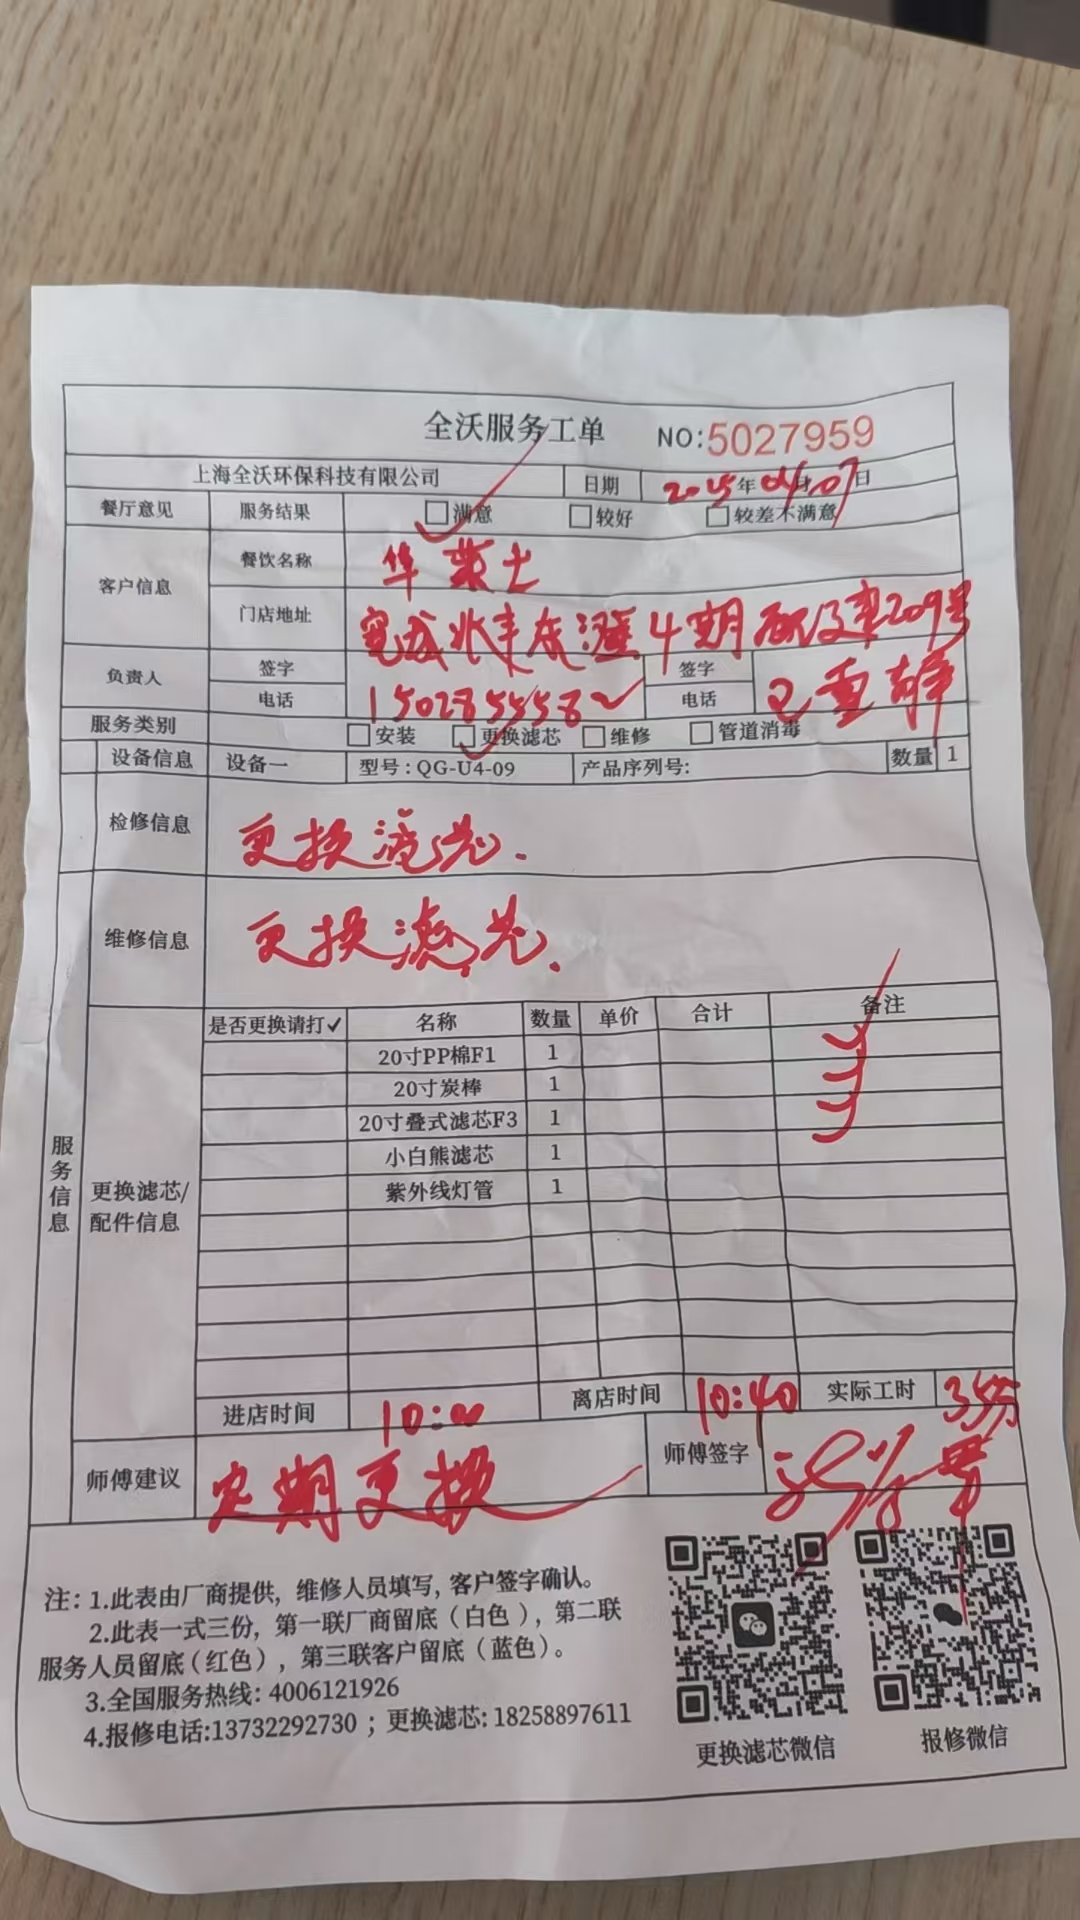 全沃服务工单 NO:5027959
上海全沃环保科技有限公司 日期 2025年01月07日
餐厅意见 服务结果 满意 较好 较差不满意
客户信息 餐饮名称 华莱士
门店地址 4期 209号
负责人 签字 签字
电话 电话
服务类别 安装 更换滤芯 维修 管道消毒
设备信息 设备一 型号:QG-U4-09 产品序列号: 数量 1
检修信息 更换滤芯.
维修信息 更换滤芯.
服务信息
更换滤芯/
配件信息
是否更换请打✓ 名称 数量 单价 合计 备注
20寸PP棉F1 1 ✓
20寸炭棒 1 ✓
20寸叠式滤芯F3 1 ✓
小白熊滤芯 1
紫外线灯管 1
进店时间 10:00 离店时间 10:40 实际工时 35分
师傅建议 定期更换 师傅签字
注: 1.此表由厂商提供, 维修人员填写, 客户签字确认。
2.此表一式三份, 第一联厂商留底 (白色), 第二联
服务人员留底 (红色), 第三联客户留底 (蓝色)。
3.全国服务热线: 4006121926
4.报修电话:13732292730 ; 更换滤芯: 18258897611
更换滤芯微信 报修微信